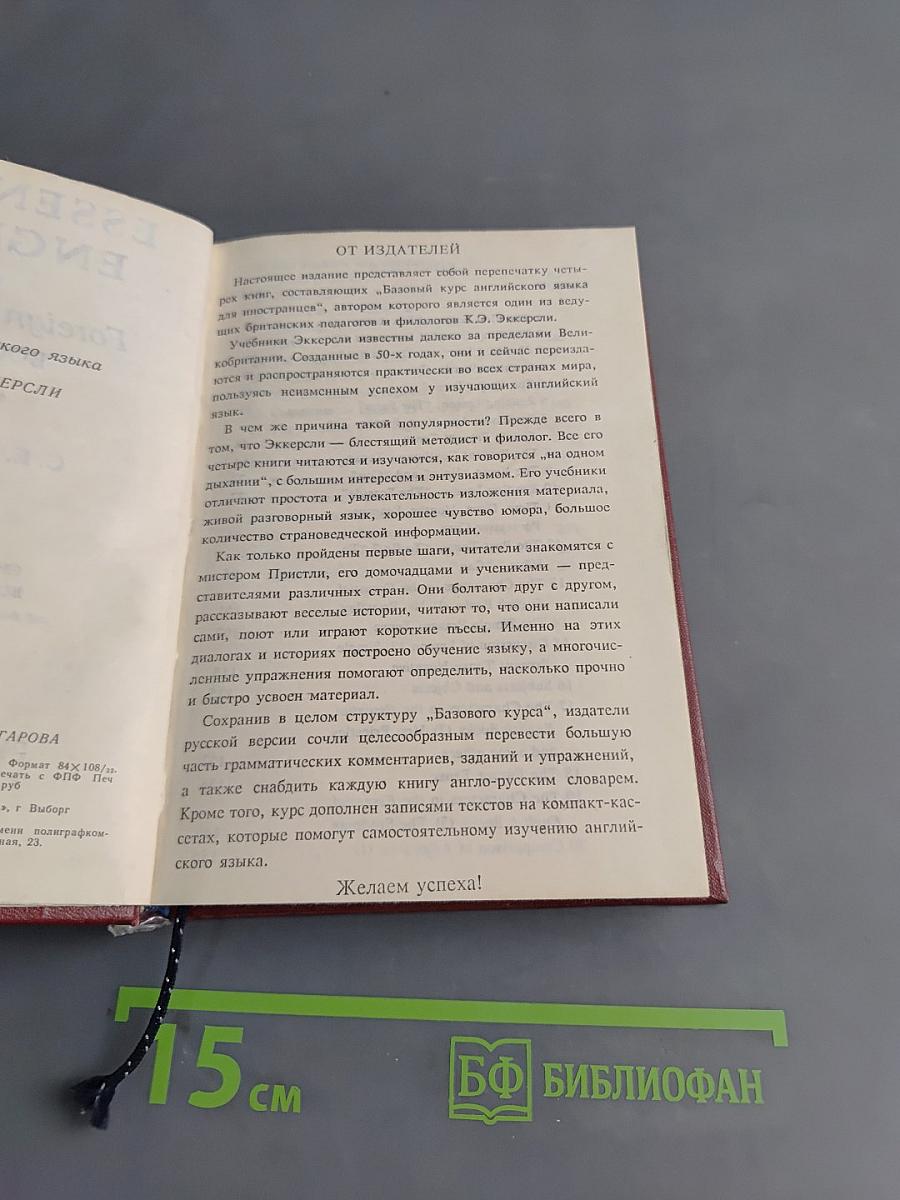 ESSEN
ENGL
Foreign
кого языка
ЕРСЛИ
C. E.
ГАРОВА
Формат 84×108/32.
ечать с ФПФ Печ
руб
», г Выборг
мени полиграфком-
ная, 23.
ОТ ИЗДАТЕЛЕЙ
Настоящее издание представляет собой перепечатку четы-
рех книг, составляющих „Базовый курс английского языка
для иностранцев“, автором которого является один из веду-
щих британских педагогов и филологов К.Э. Эккерсли.
Учебники Эккерсли известны далеко за пределами Вели-
кобритании. Созданные в 50-х годах, они и сейчас переизда-
ются и распространяются практически во всех странах мира,
пользуясь неизменным успехом у изучающих английский
язык.
В чем же причина такой популярности? Прежде всего в
том, что Эккерсли — блестящий методист и филолог. Все его
четыре книги читаются и изучаются, как говорится „на одном
дыхании“, с большим интересом и энтузиазмом. Его учебники
отличают простота и увлекательность изложения материала,
живой разговорный язык, хорошее чувство юмора, большое
количество страноведческой информации.
Как только пройдены первые шаги, читатели знакомятся с
мистером Пристли, его домочадцами и учениками — пред-
ставителями различных стран. Они болтают друг с другом,
рассказывают веселые истории, читают то, что они написали
сами, поют или играют короткие пъесы. Именно на этих
диалогах и историях построено обучение языку, а многочис-
ленные упражнения помогают определить, насколько прочно
и быстро усвоен материал.
Сохранив в целом структуру „Базового курса“, издатели
русской версии сочли целесообразным перевести большую
часть грамматических комментариев, заданий и упражнений,
а также снабдить каждую книгу англо-русским словарем.
Кроме того, курс дополнен записями текстов на компакт-кас-
сетах, которые помогут самостоятельному изучению англий-
ского языка.
Желаем успеха!
15 см
БФ БИБЛИОФАН